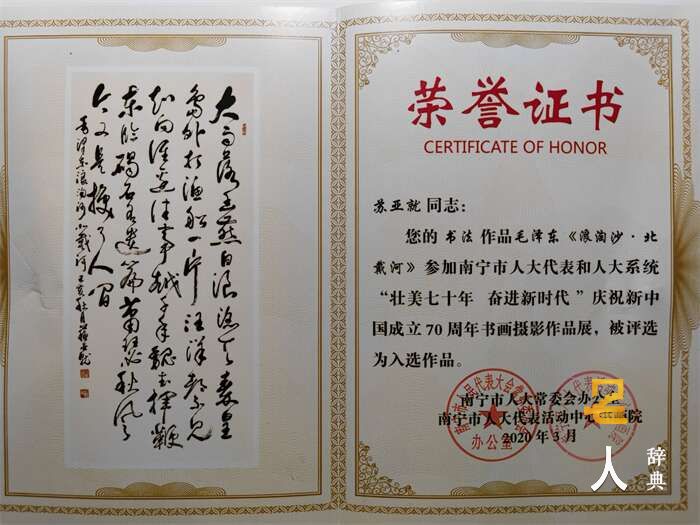 大雨落幽燕白浪滔天秦皇
岛外打渔船一片汪洋都不见
知向谁边往事越千年魏武挥鞭
东临碣石有遗篇萧瑟秋风
今又是换了人间
毛泽东浪淘沙北戴河
荣誉证书
CERTIFICATE OF HONOR
苏亚就 同志：
您的 书法 作品毛泽东《浪淘沙·北
戴河》参加南宁市人大代表和人大系统
“壮美七十年 奋进新时代”庆祝新中
国成立 70 周年书画摄影作品展，被评选
为入选作品。
南宁市人大常委会办公室
南宁市人大代表活动中心
院
2020 年 3 月
办公室
名人
辞典